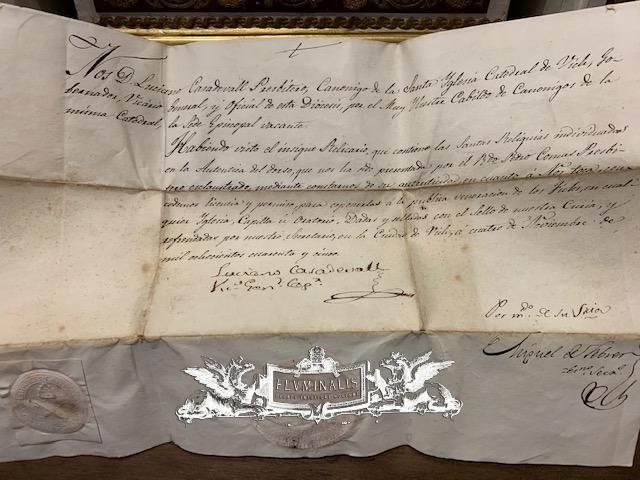 Nos D. Luciano Casadevall Presbitero, Canonigo de la Santa Iglesia Catedral de Vich, Go-
bernador, Vicario General, y Oficial de esta Diócesis, por el Muy Iltre Cabildo de Canonigos de la
misma Catedral, la Sede Episcopal vacante.
Habiendo visto el insigne Relicario, que contiene las Santas Reliquias individuadas
en la Autentica del dorso, que nos ha sido presentada por el Rdo Pedro Comas Presbi-
tero exclaustrado, mediante constarnos de su autenticidad en cuanto à Nos toca, con-
cedemos licencia y permiso, para esponerlas à la publica veneracion de los fieles, en cual-
quier Iglesia, Capilla ù Oratorio. Dadas y selladas con el Sello de nuestra Curia, y
refrendadas por nuestro Secretario, en la Ciudad de Vich, à cuatro de Noviembre de
mil ochocientos cuarenta y cinco
Luciano Casadevall
Vic.o Gen.l Cap.r
Por m.do de su Sria
Miguel
Secr.
FLVMINALIS